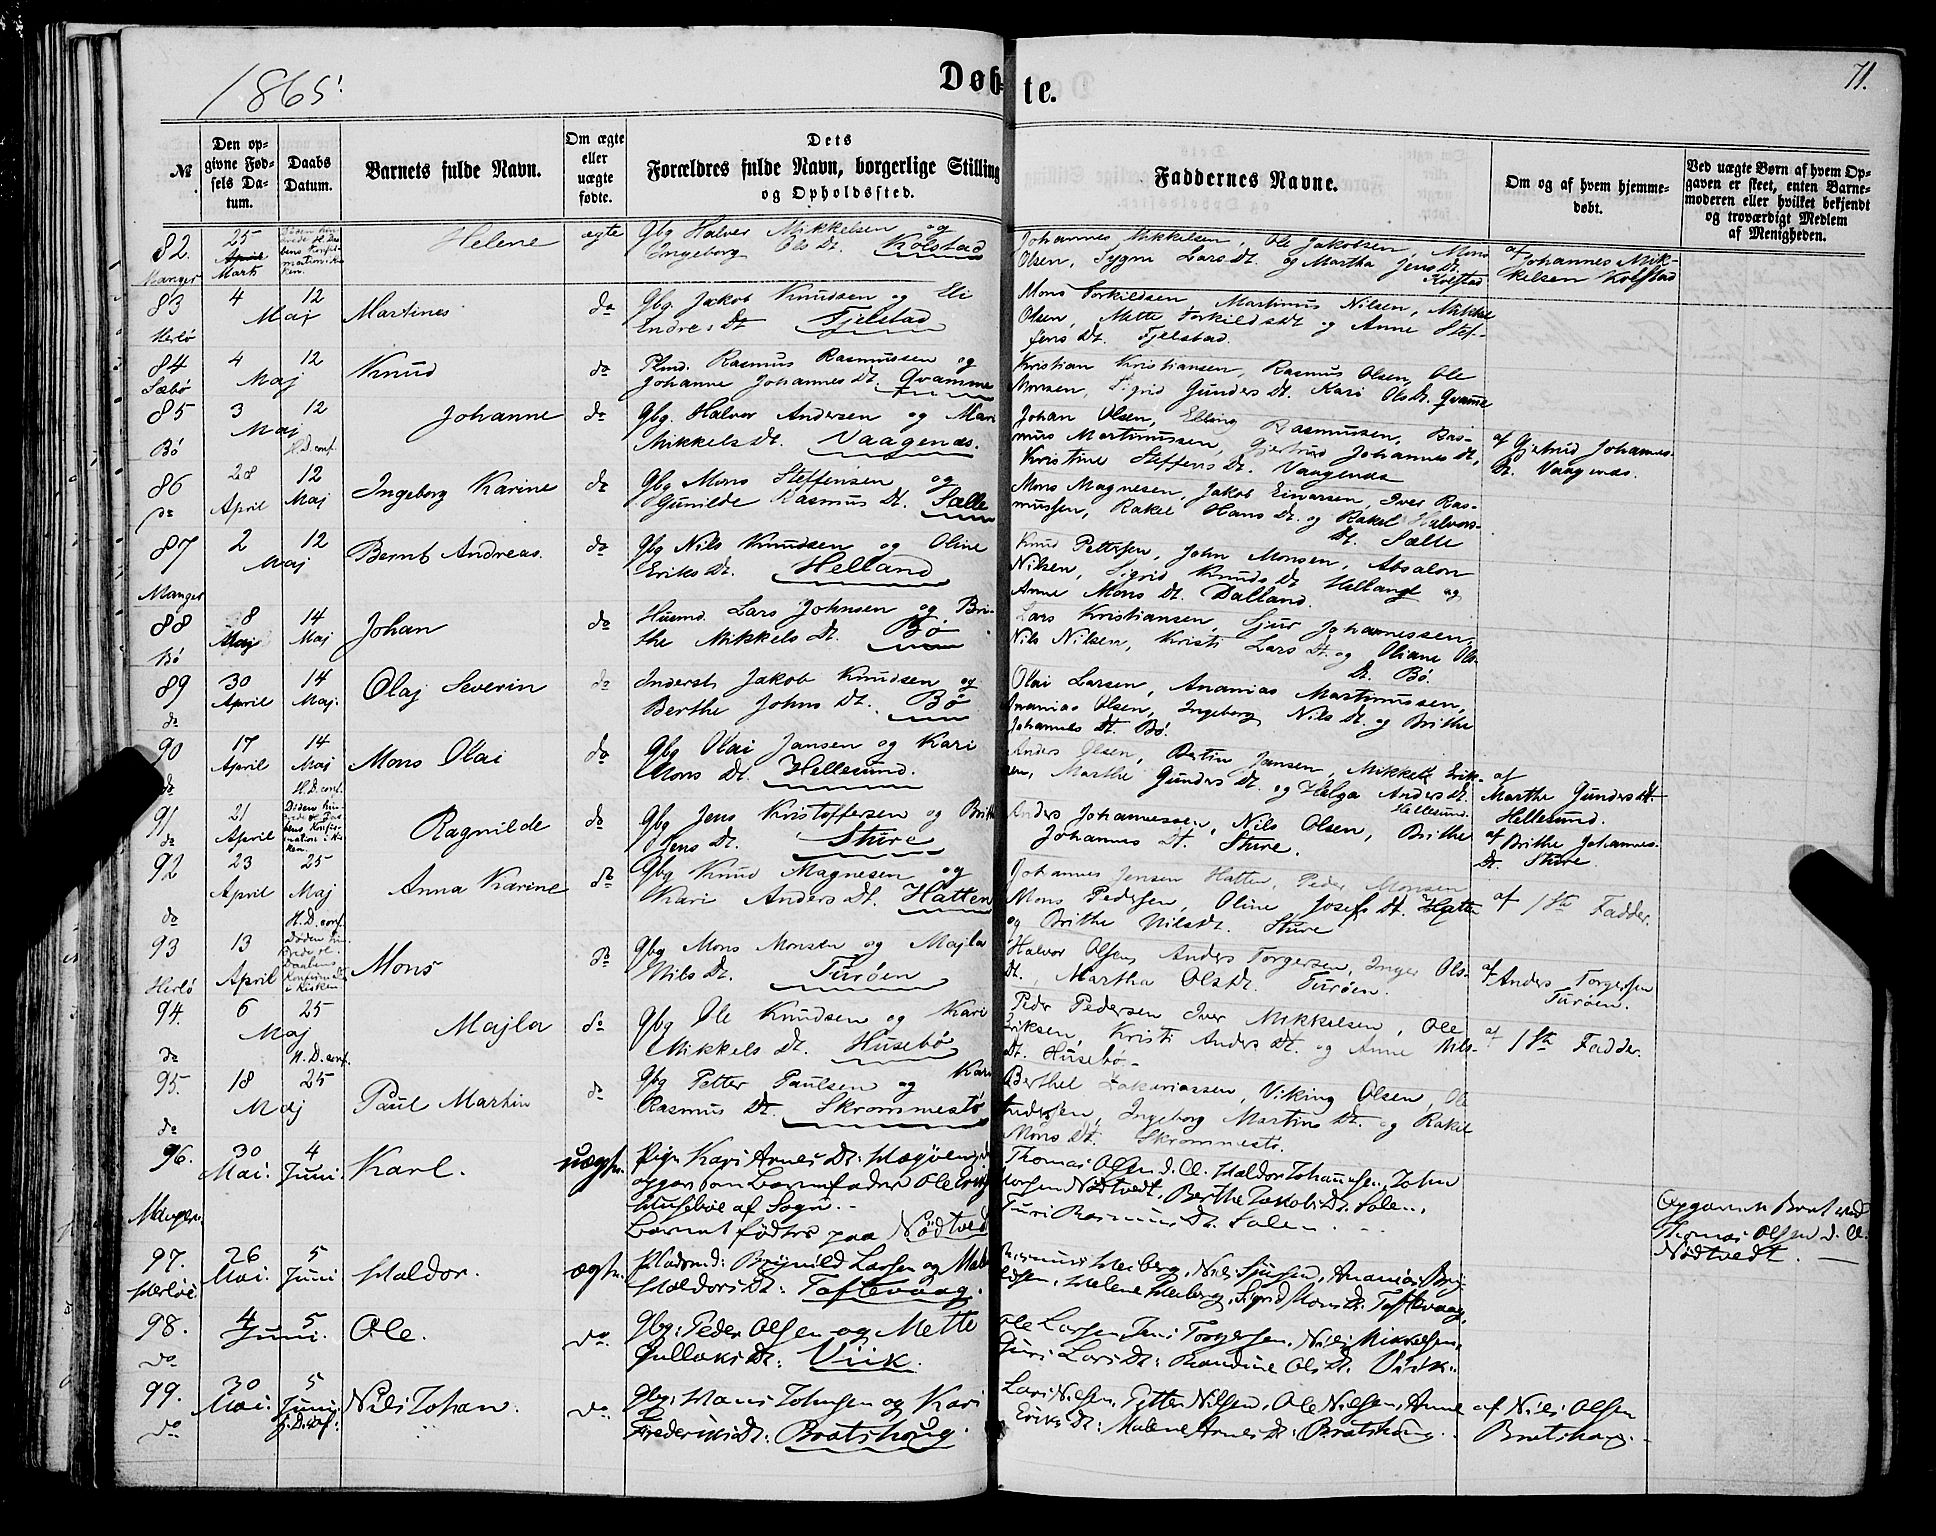 1865.
Døb-
te.
71.
№
Den op-
givne Fød-
sels Da-
tum.
Daabs
Datum.
Barnets fulde Navn.
Om ægte
eller
uægte
fødte.
Dets
Forældres fulde Navn, borgerlige Stilling
og Opholdssted.
Faddernes Navne.
Om og af hvem hjemme-
døbt.
Ved uægte Børn af hvem Op-
gaven er skeet, enten Barne-
moderen eller hvilket bekjendt
og troværdigt Medlem
af Menigheden.
82.
Manger
25
April
Mart
Helene
ægte
Gbg Halver Mikkelsen og
Ingeborg Ols Dt. Kolstad
Johannes Mikkelsen, Ole Jakobsen, Mons
Olsen, Sygni Lars Dt. og Martha Jens Dt.
Kolstad
af
Johannes Mik-
kelsen Kolstad
83
Herlø
4 12
Maj
Martines
do
Gbg Jakob Knudsen og Eli
Endre Dt. Fjelstad
Mons Torkildsen, Martinus Nilsen, Mikkel
Olsen, Mette Torkilds Dt og Anne Stef-
fens Dt. Fjelstad.
84
Sæbø
4 12
Maj
Knud
do
Plmd. Rasmus Rasmussen og
Johanne Johannes Dt. Qvamme
Kristian Kristiansen, Rasmus Olsen, Ole
Monsen, Sigrid Gunders Dt. Kari Ols Dt. Qvamme
85
Bø
3 12
Maj
H.D. conf.
Johanne
do
Gbg. Halvor Andersen og Mari
Mikkels Dt. Vaagenæs.
Johan Olsen, Elling Rasmussen, Ras-
mus Martinussen, Gjertrud Johannes Dt,
Kristine Steffens Dt. Vaagenæs
af Gjetrud Johannes
Dt. Vaagenæs.
86
do
28
April
12
Maj
Ingeborg Karine
do
Gbg Mons Steffensen og
Gunilde Rasmus Dt. Sælle
Mons Magnesen, Jakob Einarsen, Iver Ras-
mussen, Rakel Hans Dt. og Rakel Halvors-
Dt. Sælle
87
Manger
2 12
Maj
Bernt Andreas.
do
Gbg Nils Knudsen og Oline
Eriks Dt. Helland
Knud Pettersen, John Monsen, Absalon
Nilsen, Sigrid Knuds Dt Helland og
Anne Mons Dt. Dalland.
88
Bø
8
Maj
14
Maj
Johan
do
Husmd. Lars Johnsen og Bri-
the Mikkels Dt. Bø
Lars Kristiansen, Sjur Johannessen,
Nils Nilsen, Kristi Lars Dt. og Oliane Ols-
Dt. Bø.
89
do
30
April
14
Maj.
Olaj Severin
do
Inderst Jakob Knudsen og
Berthe Johns Dt. Bø
Olai Larsen, Ananias Martinussen,
Ananias Olsen, Ingeborg Nils Dt. og Brithe
Johannes Dt. Bø.
90
do
17
April
14
Maj
H.D. conf.
Mons Olai
do
Gbg Olai Jansen og Kari
Mons Dt. Hellesund.
Anders Olsen, Bertin Jansen, Mikkel Erik-
sen, Marthe Gunders Dt. og Helga Anders Dt.
Hellesund.
af
Marthe Gunders Dt.
Hellesund.
91
do
21
April
Ragnilde
do
Gbg Jens Kristoffersen og Brithe
Jens Dt. Sture
Anders Johannessen, Nils Olsen, Brithe
Johannes Dt. Sture.
af Brithe Johannes-
Dt. Sture.
92
do
23
April
25
Maj
H.D. conf.
Anna Karine
do
Gbg Knud Magnesen og
Kari Anders Dt. Hatten
Johannes Jensen Hatten, Peder Monsen
Mons Pedersen, Oline Josefs Dt. Hatten
og Brithe Nils Dt. Sture
af 1ste Fadder.
93
Herlø
13
April
Mons
do
Gbg Mons Monsen og Majla
Nils Dt. Turøen
Halvor Olsen, Anders Torgersen, Inger Ols-
Dt., Martha Ols Dt. Turøen.
af Anders Torgersen
Turøen.
94.
do
6 25
Maj
H.D. conf.
Majla
do
Gbg Ole Knudsen og Kari
Mikkels Dt. Husebø
Peder Pedersen Iver Mikkelsen, Ole
Eriksen, Kristi Anders Dt. og Anne Nils-
Dt. Husebø.
af 1ste Fadder.
95.
do
18 25
Maj
Paul Martin
do
Gbg Petter Paulsen og Kari
Rasmus Dt. Skrommestø
Berthel Zakariassen, Viking Olsen, Ole
Andersen, Ingeborg Martins Dt. og Rakel
Mons Dt. Skrommestø.
96.
Manger
30
Mai.
4
Juni.
Karl.
uægte.
Pige Kari Arnes Dt:
opgav som Barnefader Ole
Husebøe af Sogn.
Barnet fødtes paa Nødtved
Thomas Olsen d. Æ. Haldor Johannesen, John
Nødtvedt, Berthe Jakobs Dt. Solem,
Turi Rasmus Dt. Solem.
Opgaven Bort ved
Thomas Olsen d. Æ.
Nødtvedt.
97.
Herløe
26
Mai.
5
Juni
Haldor.
ægte.
Pladsmd: Brynild Larsen og
Haldors Dt: Toftevaag.
Heiberg, Nils Sjursen, Ananias Bry-
ldsen, Helene Heiberg, Sigrid Mons Dt: Toftevaag.
98.
do
4 5
Juni.
Ole.
do
Gbg: Peder Olsen og Mette
Gullaks Dt: Viik.
Ole Larsen Jens Torgersen, Nils Mikkelsen,
Guri Lars Dt: Randine Ols Dt. Viik.
99.
do
30
Mai.
5
Juni
H.D. conf:
Nils Johan.
do
Gbg: Hans Johnsen og Kari
Frederiks Dt: Bratshoug.
Lars Nilsen, Petter Nilsen, Ole Nilsen, Anne
Eriks Dt: Malene Arnes Dt: Bratshoug.
af Nils Olsen
Bratshoug.